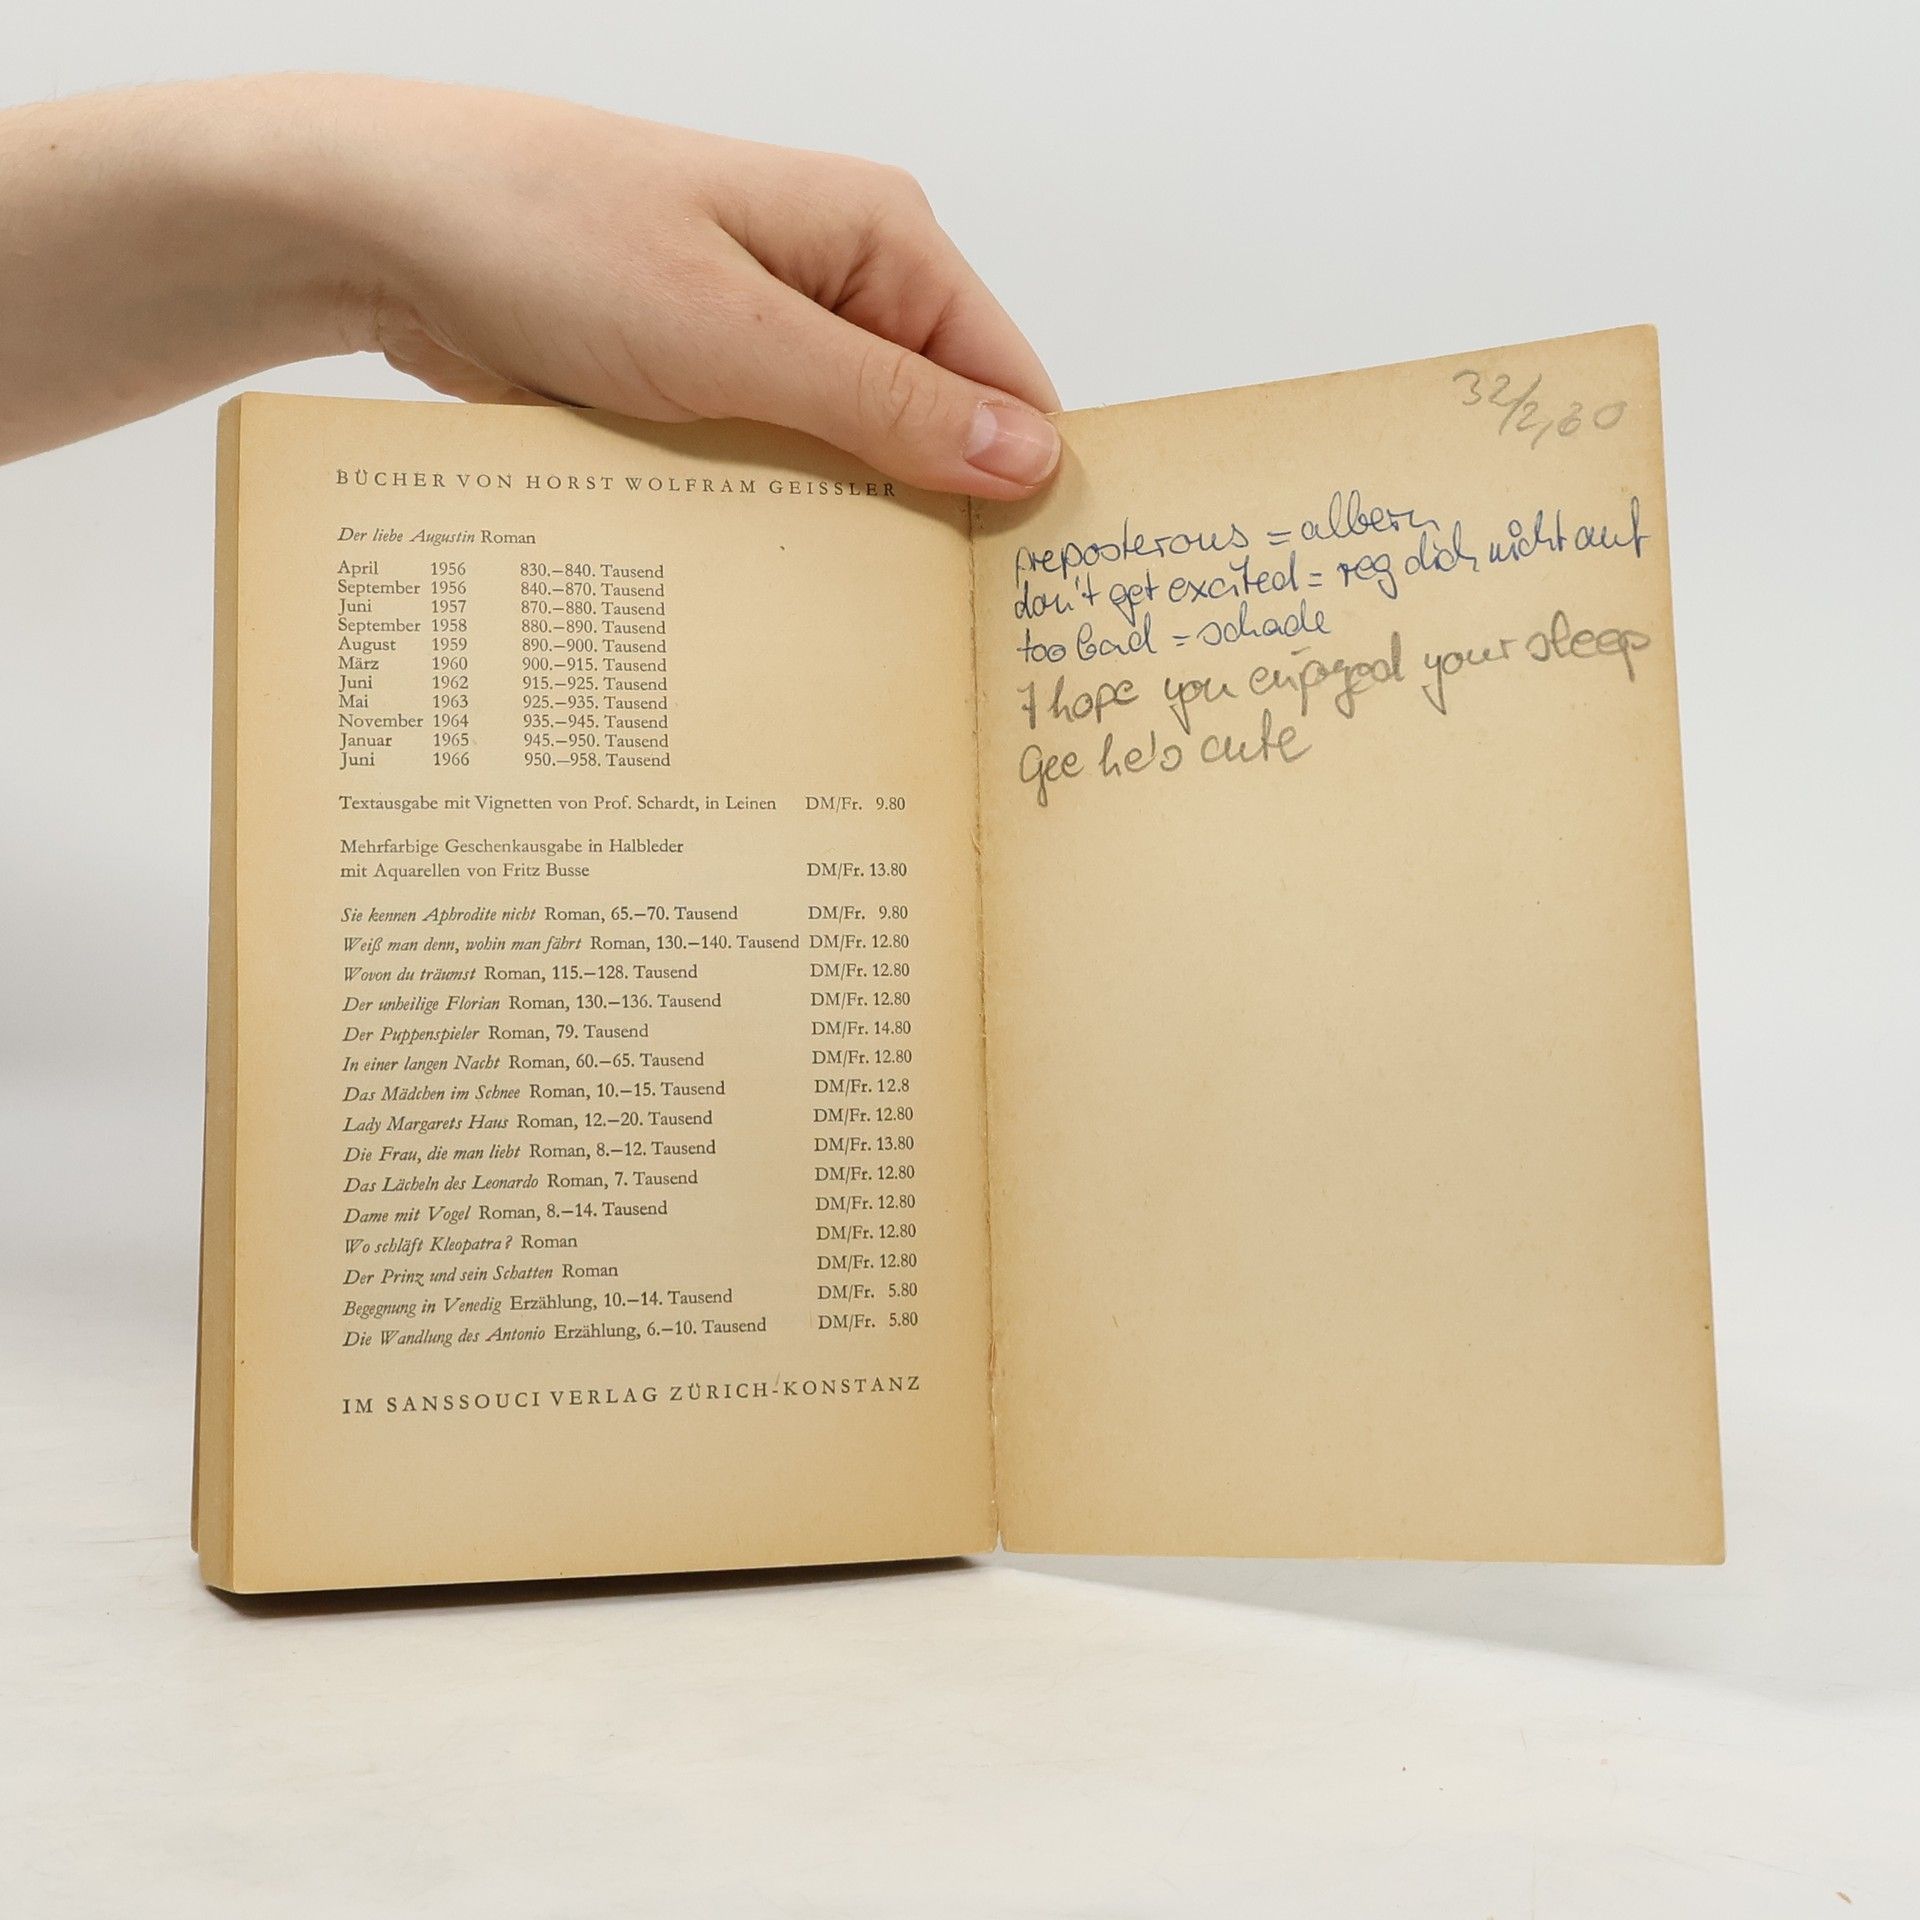 BÜCHER VON HORST WOLFRAM GEISSLER
Der liebe Augustin Roman
April 1956 830.—840. Tausend
September 1956 840.—870. Tausend
Juni 1957 870.—880. Tausend
September 1958 880.—890. Tausend
August 1959 890.—900. Tausend
März 1960 900.—915. Tausend
Juni 1962 915.—925. Tausend
Mai 1963 925.—935. Tausend
November 1964 935.—945. Tausend
Januar 1965 945.—950. Tausend
Juni 1966 950.—958. Tausend
Textausgabe mit Vignetten von Prof. Schardt, in Leinen DM/Fr. 9.80
Mehrfarbige Geschenkausgabe in Halbleder
mit Aquarellen von Fritz Busse DM/Fr. 13.80
Sie kennen Aphrodite nicht Roman, 65.—70. Tausend DM/Fr. 9.80
Weiß man denn, wohin man fährt Roman, 130.—140. Tausend DM/Fr. 12.80
Wovon du träumst Roman, 115.—128. Tausend DM/Fr. 12.80
Der unheilige Florian Roman, 130.—136. Tausend DM/Fr. 12.80
Der Puppenspieler Roman, 79. Tausend DM/Fr. 14.80
In einer langen Nacht Roman, 60.—65. Tausend DM/Fr. 12.80
Das Mädchen im Schnee Roman, 10.—15. Tausend DM/Fr. 12.8
Lady Margarets Haus Roman, 12.—20. Tausend DM/Fr. 12.80
Die Frau, die man liebt Roman, 8.—12. Tausend DM/Fr. 13.80
Das Lächeln des Leonardo Roman, 7. Tausend DM/Fr. 12.80
Dame mit Vogel Roman, 8.—14. Tausend DM/Fr. 12.80
Wo schläft Kleopatra? Roman DM/Fr. 12.80
Der Prinz und sein Schatten Roman DM/Fr. 12.80
Begegnung in Venedig Erzählung, 10.—14. Tausend DM/Fr. 5.80
Die Wandlung des Antonio Erzählung, 6.—10. Tausend DM/Fr. 5.80
IM SANSSOUCI VERLAG ZÜRICH-KONSTANZ
preposterous = albern
don't get excited = reg dich nicht auf
too bad = schade
I hope you enjoyed your sleep
Gee he's cute